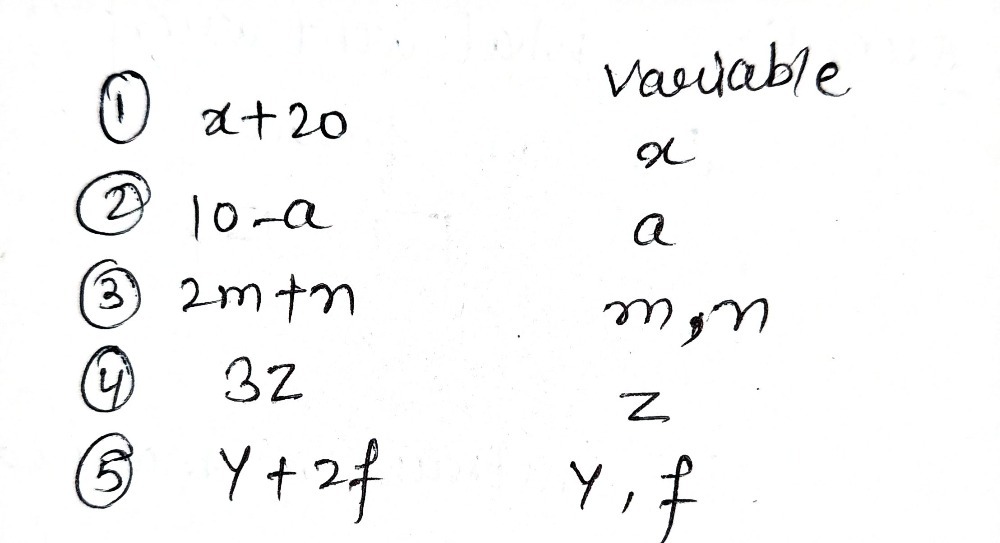 variable
① x+20 x
② 10-a a
③ 2m+n m,n
④ 3z z
⑤ y+2f y,f